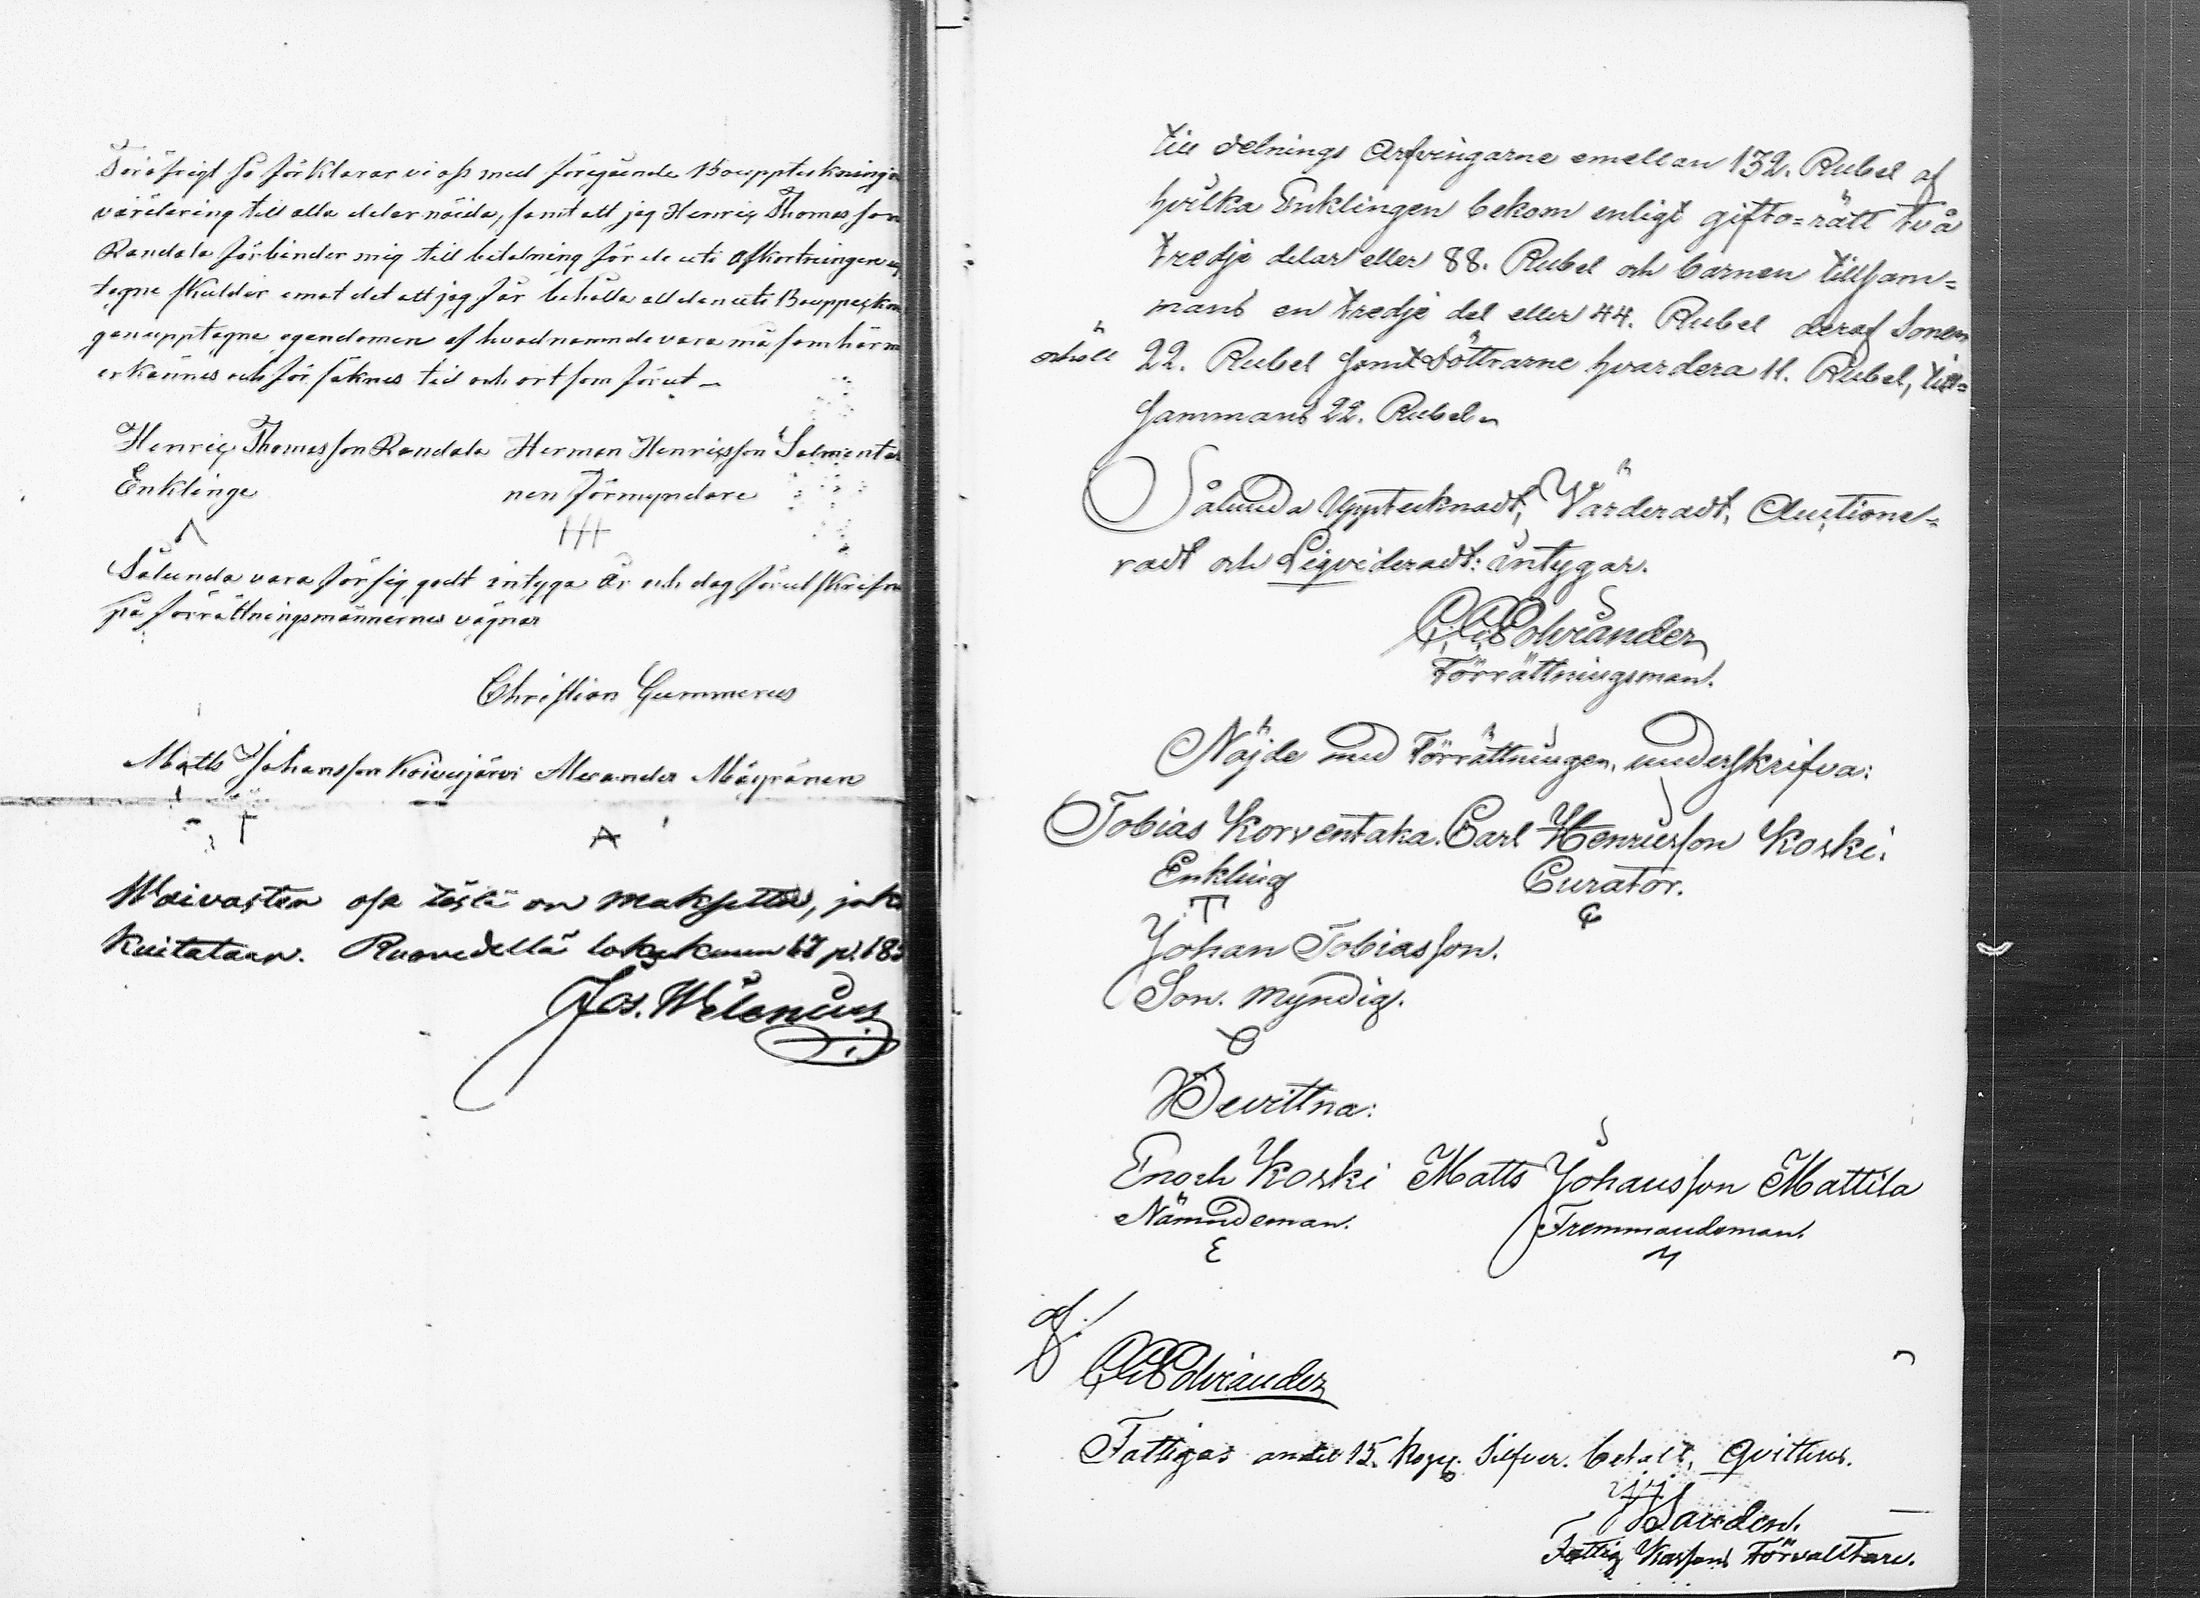 Föröfrigt så förklarar vi oss med föregående Bouppteckning o
värdering till alla delar nöida, samt att jag Henric Thomasson
Randala förbinder mig till betalning för de uti Afkortningen up
tagne skulder emot det att jag får behålla all den uti Bouppteckn
gen upptagne egendomen af hvad namn de vara må som härm
erkännes och försäknes tid och ort som förut
Henric Thomasson Randala Herman Henricsson Salmenta
Enklinge nen Förmyndare
Sålunda vara för sig godt intyga År och dag förutskrifne
på förrättningsmännernes vägnar
Christian Gummerus
Matts Johansson Koivujärvi Alexander Mäyränen
T A
Waivasten osa tästä on maksettu, joka
kuitataan. Ruovedellä lokakuun 17 p. 185
Jos. Wilenius
till delnings Arfvingarne emellan 132. Rubel af
hvilka Enklingen bekom enligt gifto=rätt två
tredje delar eller 88. Rubel och barnen tillsam=
mans en tredje del eller 44. Rubel deraf Sonen
erhöll 22. Rubel samt Döttrarne hvardera 11. Rubel, till=
sammans 22. Rubel.
Sålunda Upptecknadt, Värderadt, Auctione=
radt och Liqvideradt: intygar.
Polviander
Förrättningsman.
Nöjde med Förrättningen, underskrifva:
Tobias Korventaka. Carl Henricsson Koski.
Enkling Curator.
T C
Johan Tobiasson.
Son. myndig.
Bevittna:
Enoch Koski Matts Johansson Mattila
Nämndeman. Fremmandeman.
E M
Polviander
Fattigas andel 15. Kopek. Silfver. betalt, Qvitteras.
Fattig Kassans Förvaltare.